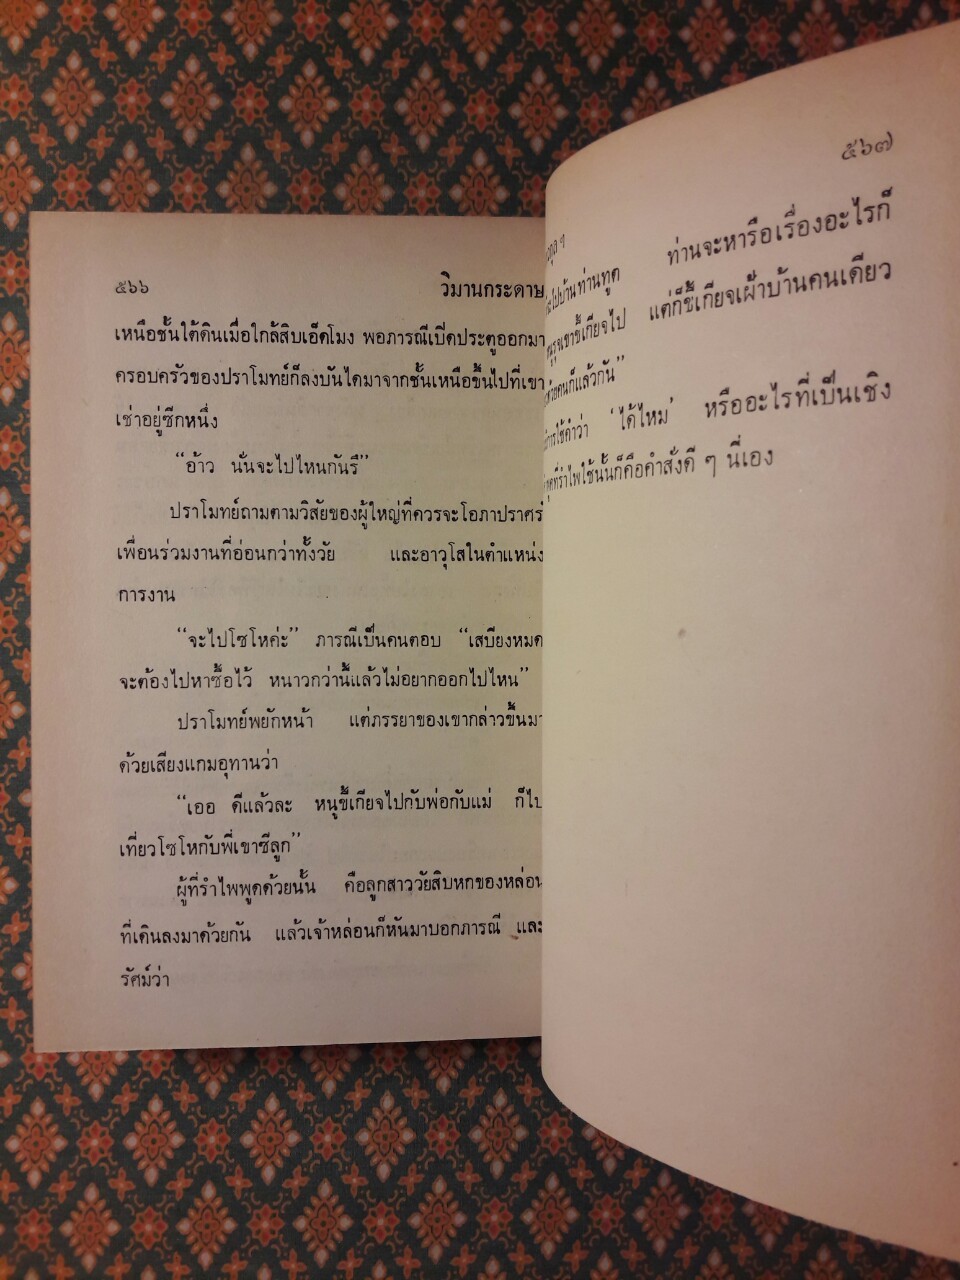 ๕๖๖ วิมานกระดาษ
เหนือชั้นใต้ดินเมื่อใกล้สิบเอ็ดโมง พอภารณีเปิดประตูออกมา
ครอบครัวของปราโมทย์ก็ลงบันไดมาจากชั้นเหนือขึ้นไปที่เขา
เช่าอยู่ซีกหนึ่ง
“อ้าว นั่นจะไปไหนกันรึ”
ปราโมทย์ถามตามวิสัยของผู้ใหญ่ที่ควรจะโอภาปราศรั
เพื่อนร่วมงานที่อ่อนกว่าทั้งวัย และอาวุโสในตำแหน่ง
การงาน
“จะไปโซโหค่ะ” ภารณีเป็นคนตอบ “เสบียงหมด
จะต้องไปหาซื้อไว้ หนาวกว่านี้แล้วไม่อยากออกไปไหน”
ปราโมทย์พยักหน้า แต่ภรรยาของเขากล่าวขึ้นมา
ด้วยเสียงแกมอุทานว่า
“เออ ดีแล้วละ หนูขี้เกียจไปกับพ่อกับแม่ ก็ไป
เที่ยวโซโหกับพี่เขาซีลูก”
ผู้ที่รำไพพูดด้วยนั้น คือลูกสาววัยสิบหกของหล่อน
ที่เดินลงมาด้วยกัน แล้วเจ้าหล่อนก็หันมาบอกภารณี และ
รัศม์ว่า
๕๖๗
ไปบ้านท่านทูต ท่านจะหารือเรื่องอะไรก็
เขาขี้เกียจไป แต่ก็ขี้เกียจเฝ้าบ้านคนเดียว
คนก็แล้วกัน”
การใช้คำว่า ‘ได้ไหม’ หรืออะไรที่เป็นเชิง
ที่รำไพใช้นั้นก็คือคำสั่งดี ๆ นี่เอง